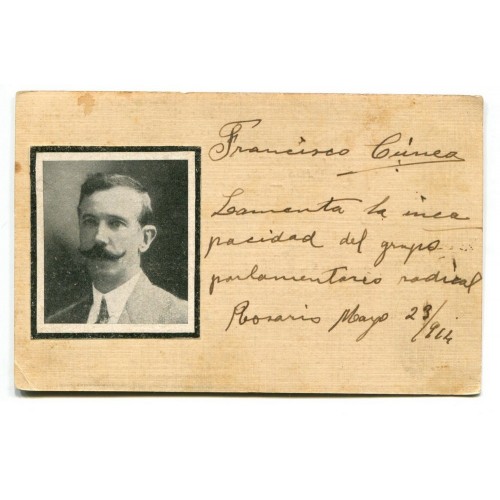 Francisco Cúneo
Lamenta la inca
pacidad del grupo
parlamentario radical
Rosario Mayo 23/914